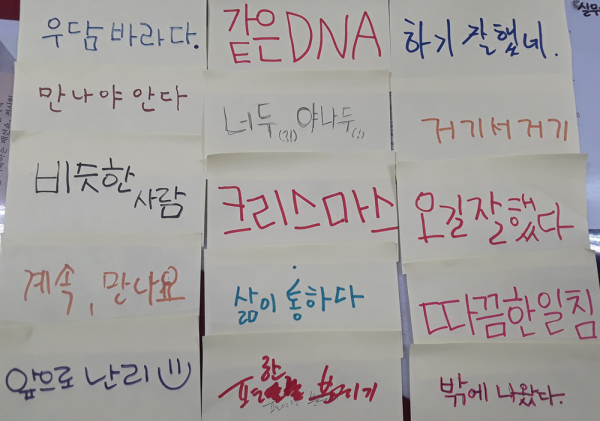 우담바라다.
같은 DNA
하기 잘했네.
만나야 안다
너두(?!) 야나두(!)
거기서 거기
비슷한
사람
크리스마스
오길잘했다
계속, 만나요
삶이 통하다
따끔한일침
앞으로 난리
한
밖에 나왔다.